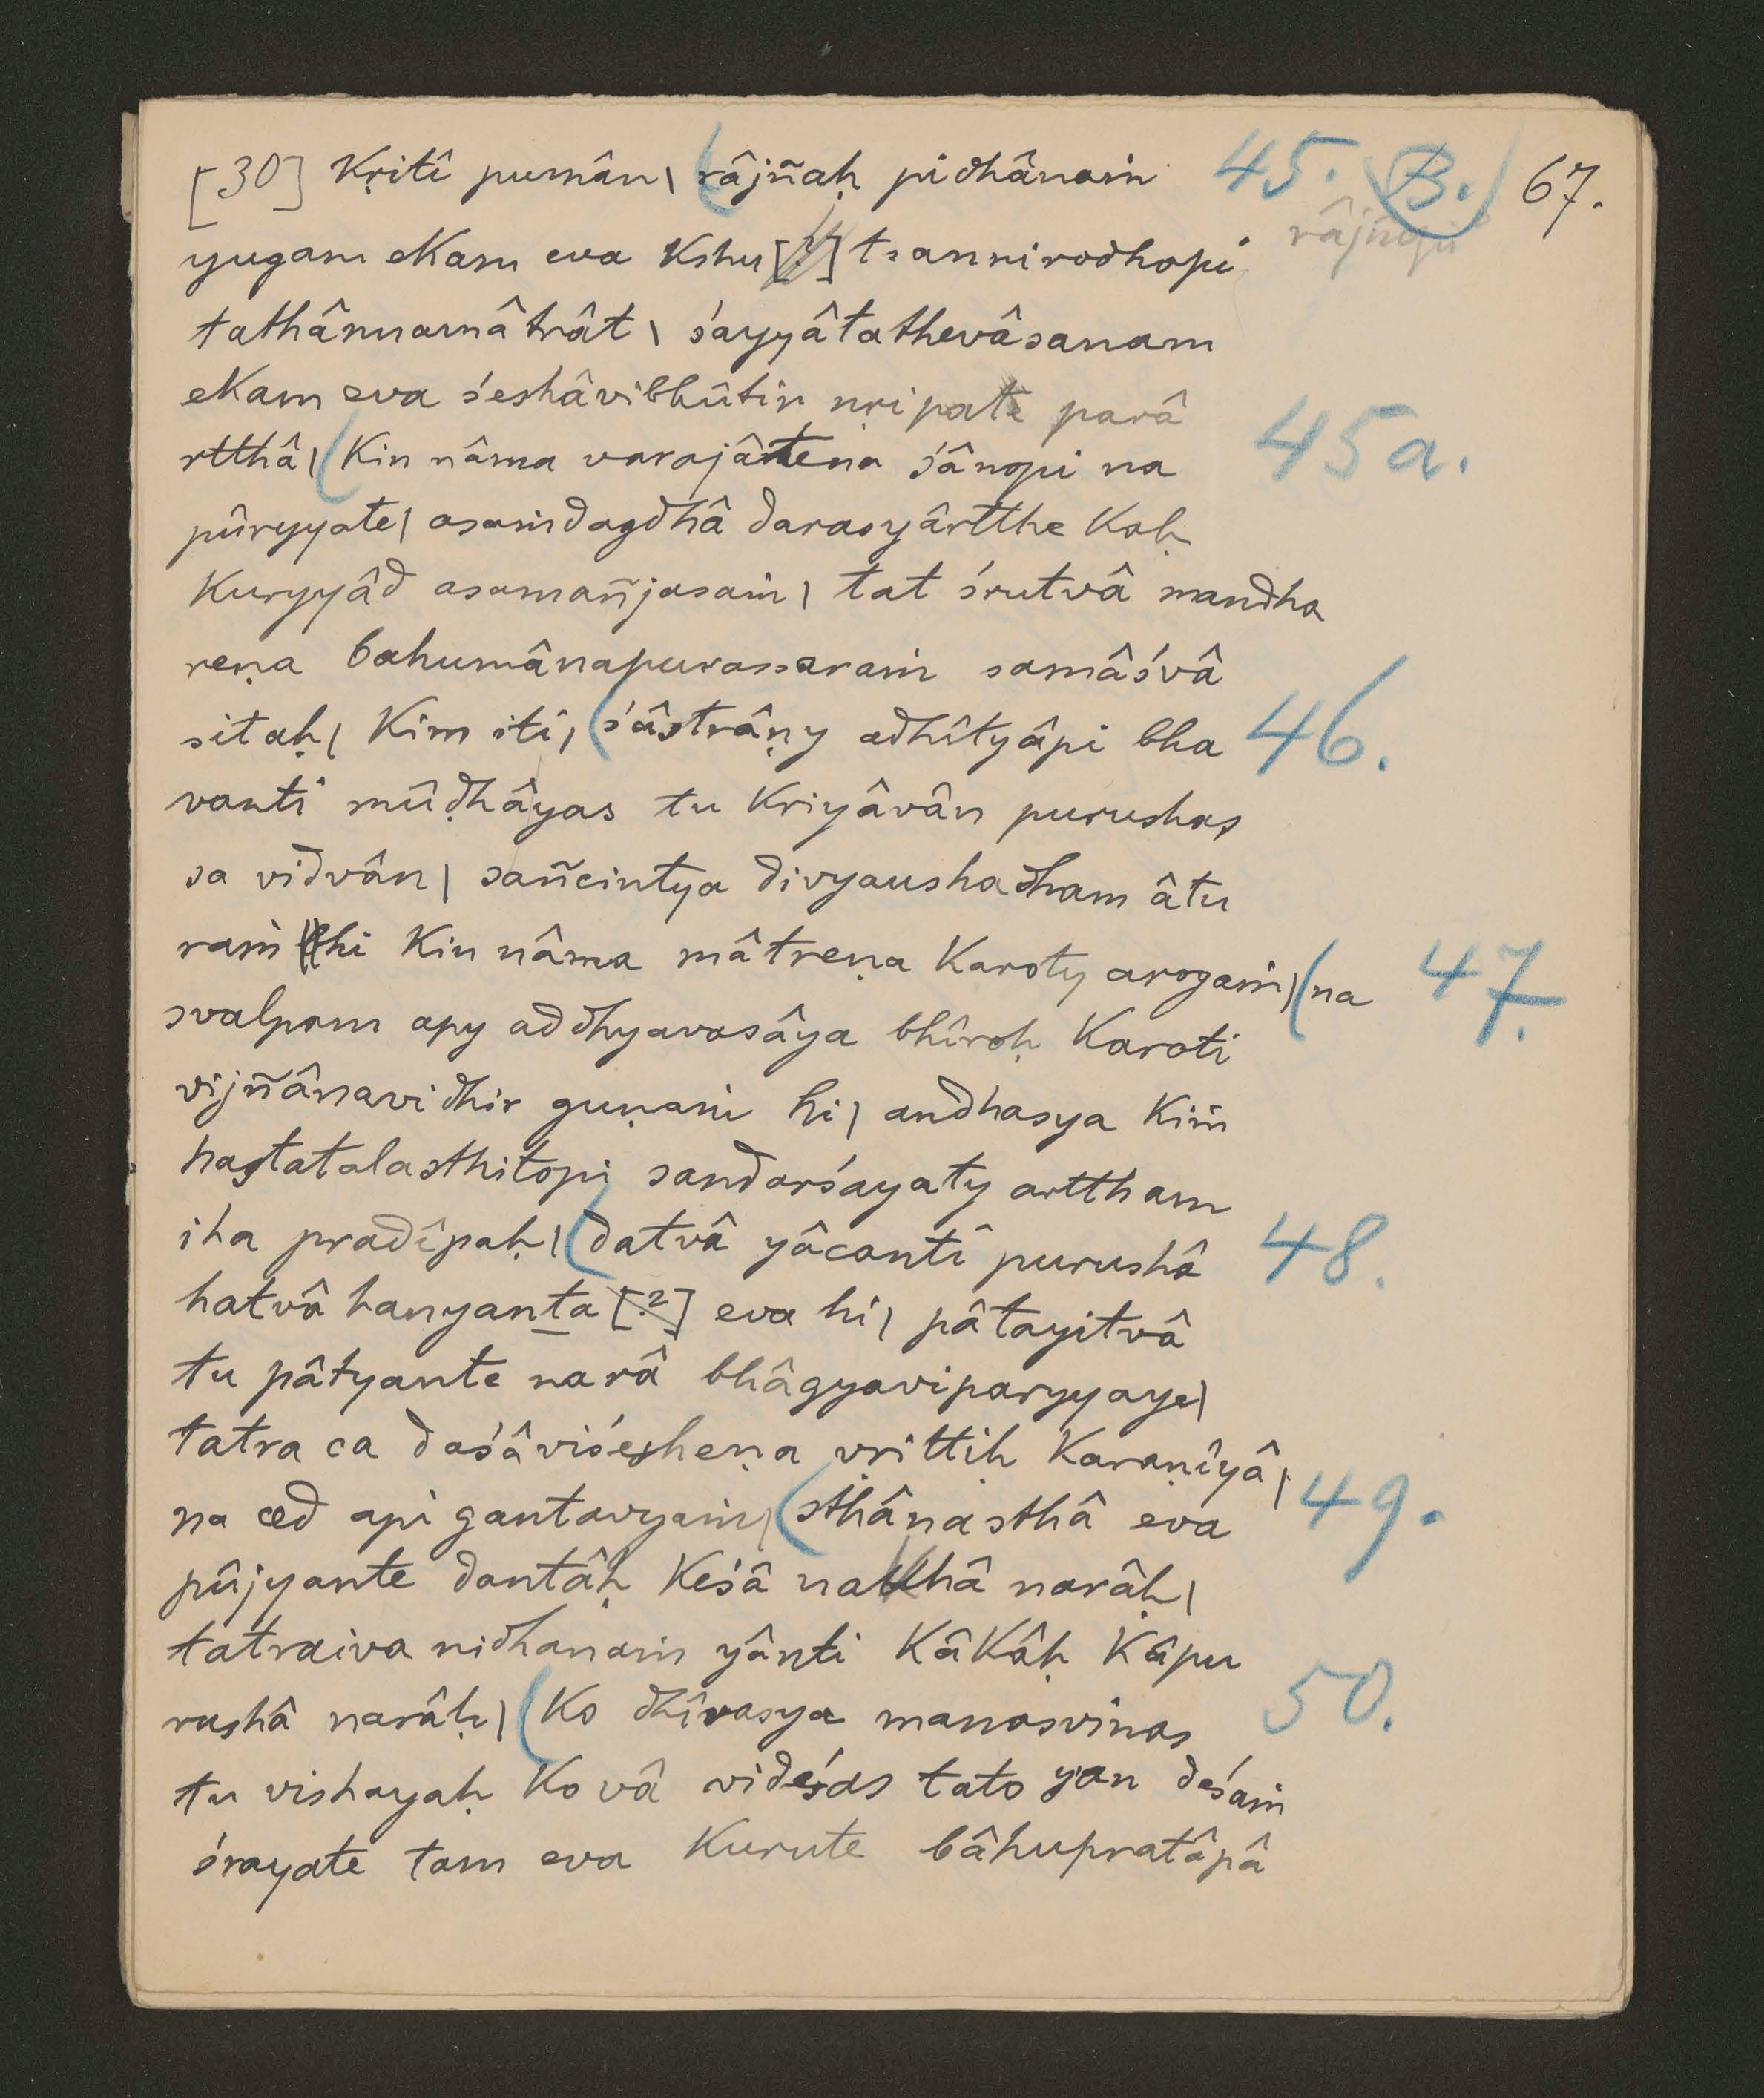 [30] kṛitî pumân| (râjñaḥ pidhânaṁ 45. (B.) 67.
râjñaḥ
yugam ekam eva kshu[?]tsannirodhopi
tathânnamâtrât| śayyâtathevâsanam
ekam eva śeshâvibhûtir nṛipate parâ
rtthâ| (kin nâma varajâtena śânopi na 45a.
pûryyate| asaṁdagdhâ darasyârtthe kaḥ
kuryyâd asamañjasaṁ| tat śrutvâ mandha
reṇa bahumânapurassaraṁ samâśvâ
sitaḥ| kim iti| (śâstrâṇy adhîtyâpi bha 46.
vanti mûḍhâyas tu kriyâvân purushas
sa vidvân| sañcintya divyaushadham âtu
raṁ hi kin nâma mâtreṇa karoty arogaṁ| (na 47.
svalpam apy addhyavasâya bhîroḥ karoti
vijñânavidhir guṇaṁ hi| andhasya kiṁ
hastatalasthitopi sandarśayaty arttham
iha pradîpaḥ| (datvâ yâcanti purushâ 48.
hatvâ hanyanta [?] eva hi| pâtayitvâ
tu pâtyante narâ bhâgyaviparyyaye|
tatra ca daśâviśesheṇa vṛittiḥ karaṇîyâ|
na ced api gantavyaṁ| (sthânasthâ eva 49.
pûjyante dantâḥ keśâ nakhâ narâḥ|
tatraiva nidhanaṁ yânti kâkâḥ kâpu
rushâ narâḥ| (ko dhîrasya manasvinas 50.
tu vishayaḥ ko vâ videśas tato yan deśaṁ
śrayate tam eva kurute bâhupratâpâ